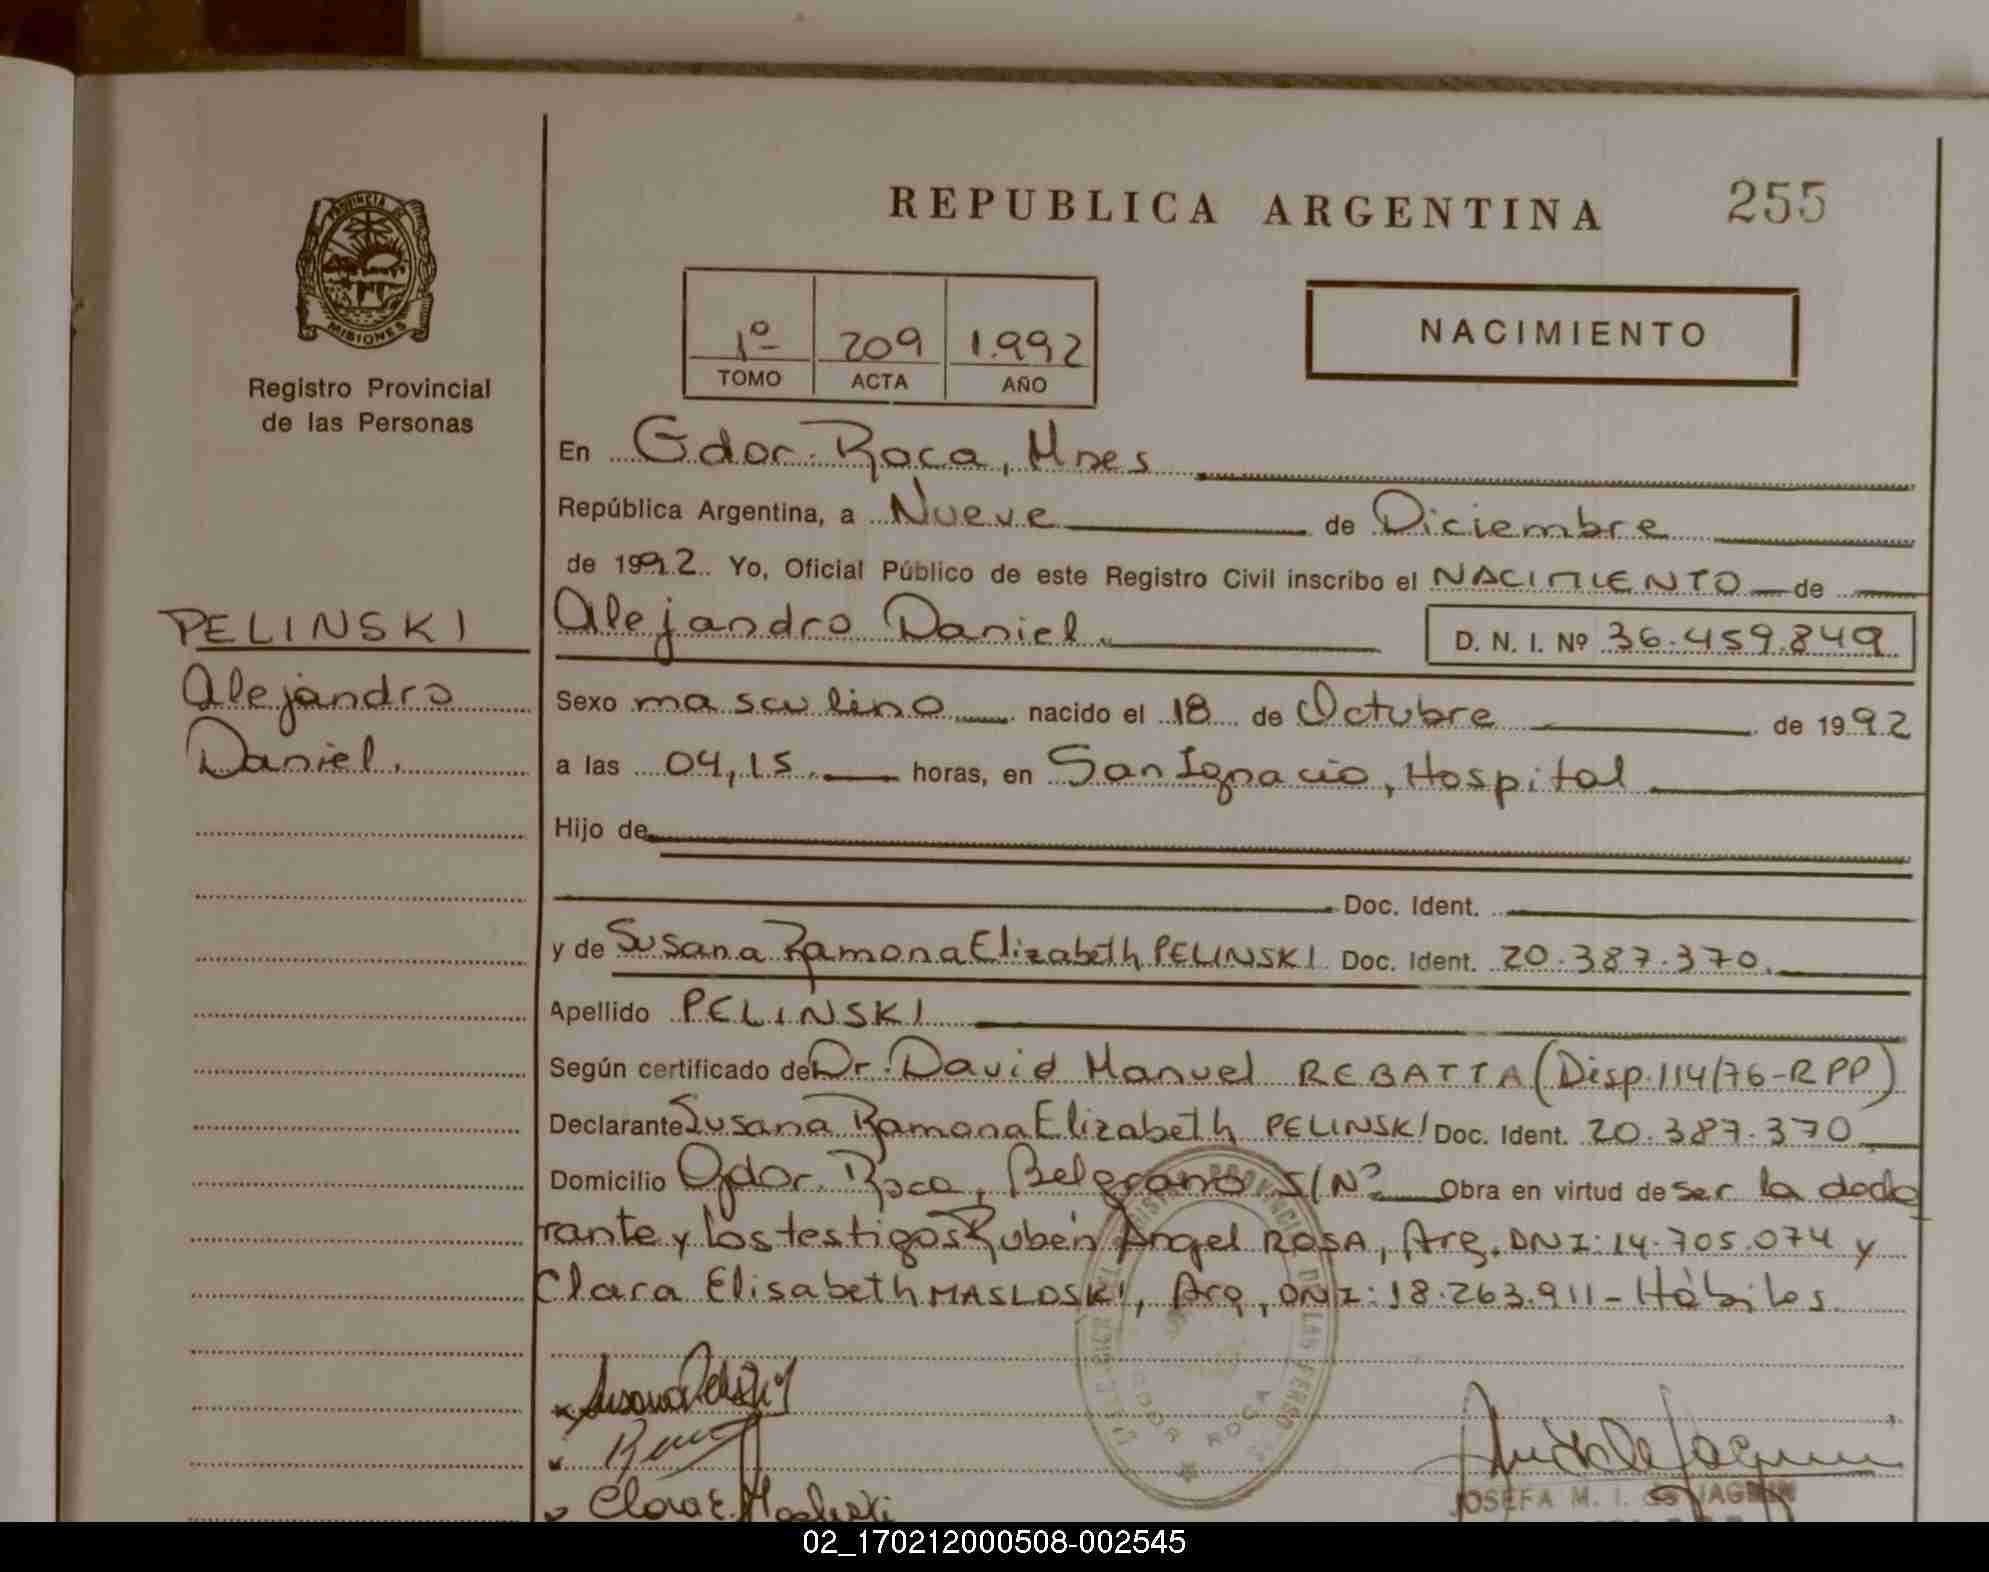 REPUBLICA ARGENTINA 255
PROVINCIA DE
MISIONES
Registro Provincial
de las Personas
1º 209 1.992
TOMO ACTA AÑO
NACIMIENTO
En Gdor. Roca, Mnes
República Argentina, a Nueve de Diciembre
de 1992. Yo, Oficial Público de este Registro Civil inscribo el NACIMIENTO de
PELINSKI
Alejandro
Daniel.
Alejandro Daniel. D. N. I. Nº 36.459.849
Sexo masculino nacido el 18 de Octubre de 1992
a las 04,15. horas, en San Ignacio, Hospital
Hijo de
Doc. Ident.
y de Susana Ramona Elizabeth PELINSKI Doc. Ident. 20.387.370.
Apellido PELINSKI
Según certificado de Dr. David Manuel REBATTA (Disp. 114/76-RPP)
Declarante Susana Ramona Elizabeth PELINSKI Doc. Ident. 20.387.370
Domicilio Gdor. Roca, Belgrano S/Nº Obra en virtud de ser la decla
rante y los testigos Rubén Angel ROSA, Arg. DNI: 14.705.074 y
Clara Elisabeth MASLOSKI, Arg, DNI: 18.263.911 - Hábiles
GDOR ROCA
Clara E. Masloski
JOSEFA M. I.
02_170212000508-002545